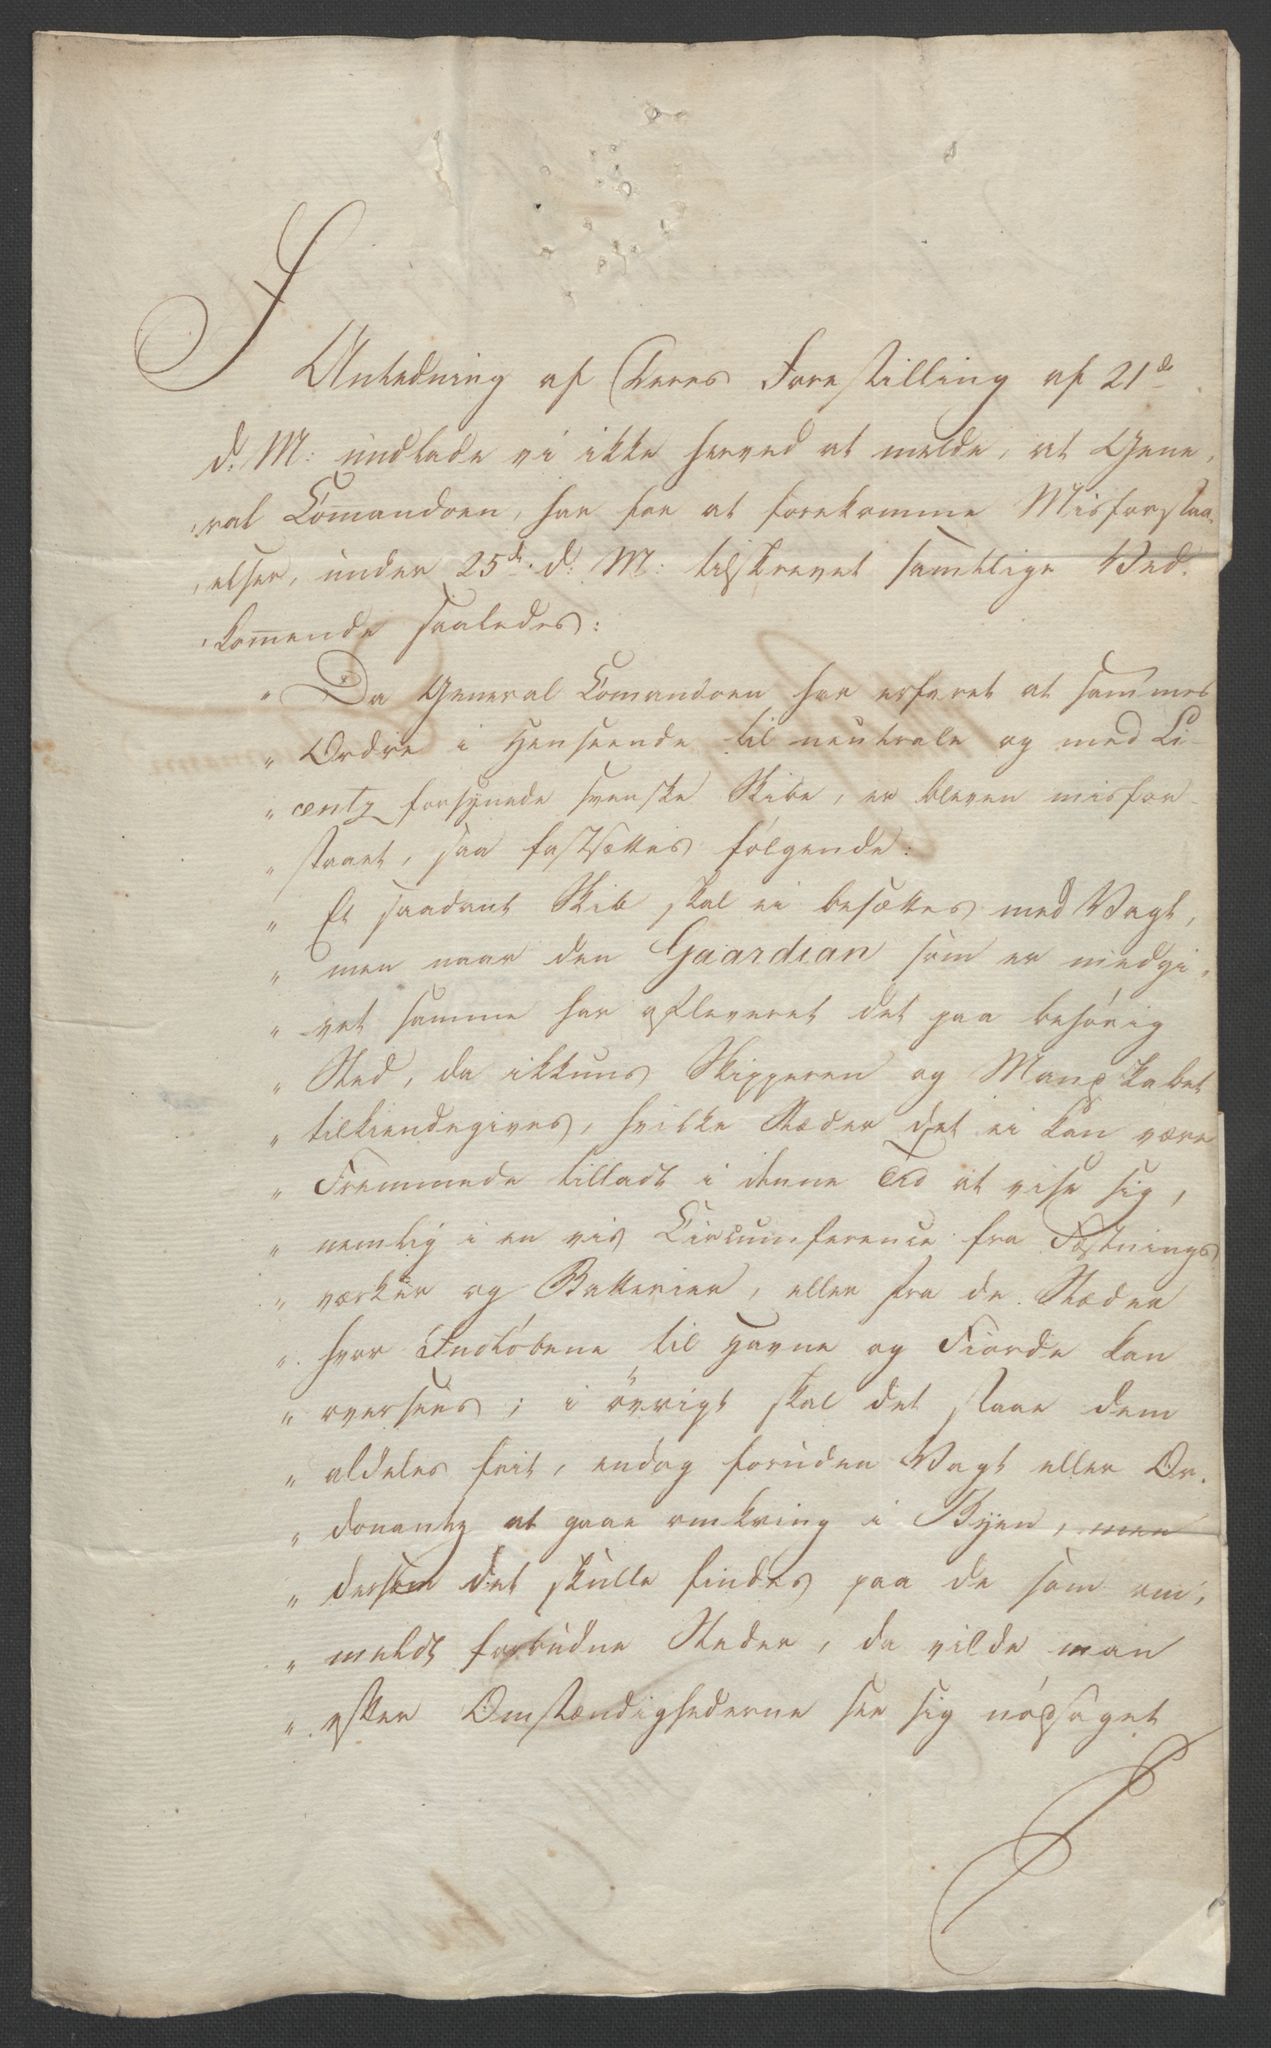 I
Anledning af Deres Forestilling af 21de
d: M: undlade vi ikke herved at melde, at Gene,
,ral Comandoen, har for at forekomme Misforstaa,
,elser, under 25de d: M: tilskrevet samtlige Ved,
,kommende saaledes:
" Da General Comandoen har erfaret at sammes
" Ordre i Henseende til neutrale og med Li-
" centz forsynede svenske Skibe, er bleven misfor-
" staaet, saa fastsættes følgende:
" Et saadant Skib skal ei besættes med Vagt,
" men naar den Gaardian som er medgi,
" vet samme har afleveret det paa behörig
" Sted, da ikkuns Skipperen og Mandskabet
" tilkiendegives, hvilke Stæder det ei kan være
" Fremmede tilladt i denne Tid at vise sig,
" nemlig i en vis Circumference fra Fæstnings
" værker og Batterier, eller fra de Stæder
" hvor Indløbene til Havne og Fiorde kan
" oversees; i övrigt skal det staae dem
" aldeles frit, endog foruden Vagt eller Or,
" donantz at gaae omkring i Byen, men
" dersom det skulle findes paa de som om,
" meldt forbudne Steder, da vilde man
" efter Omstændighederne see sig nödsaget